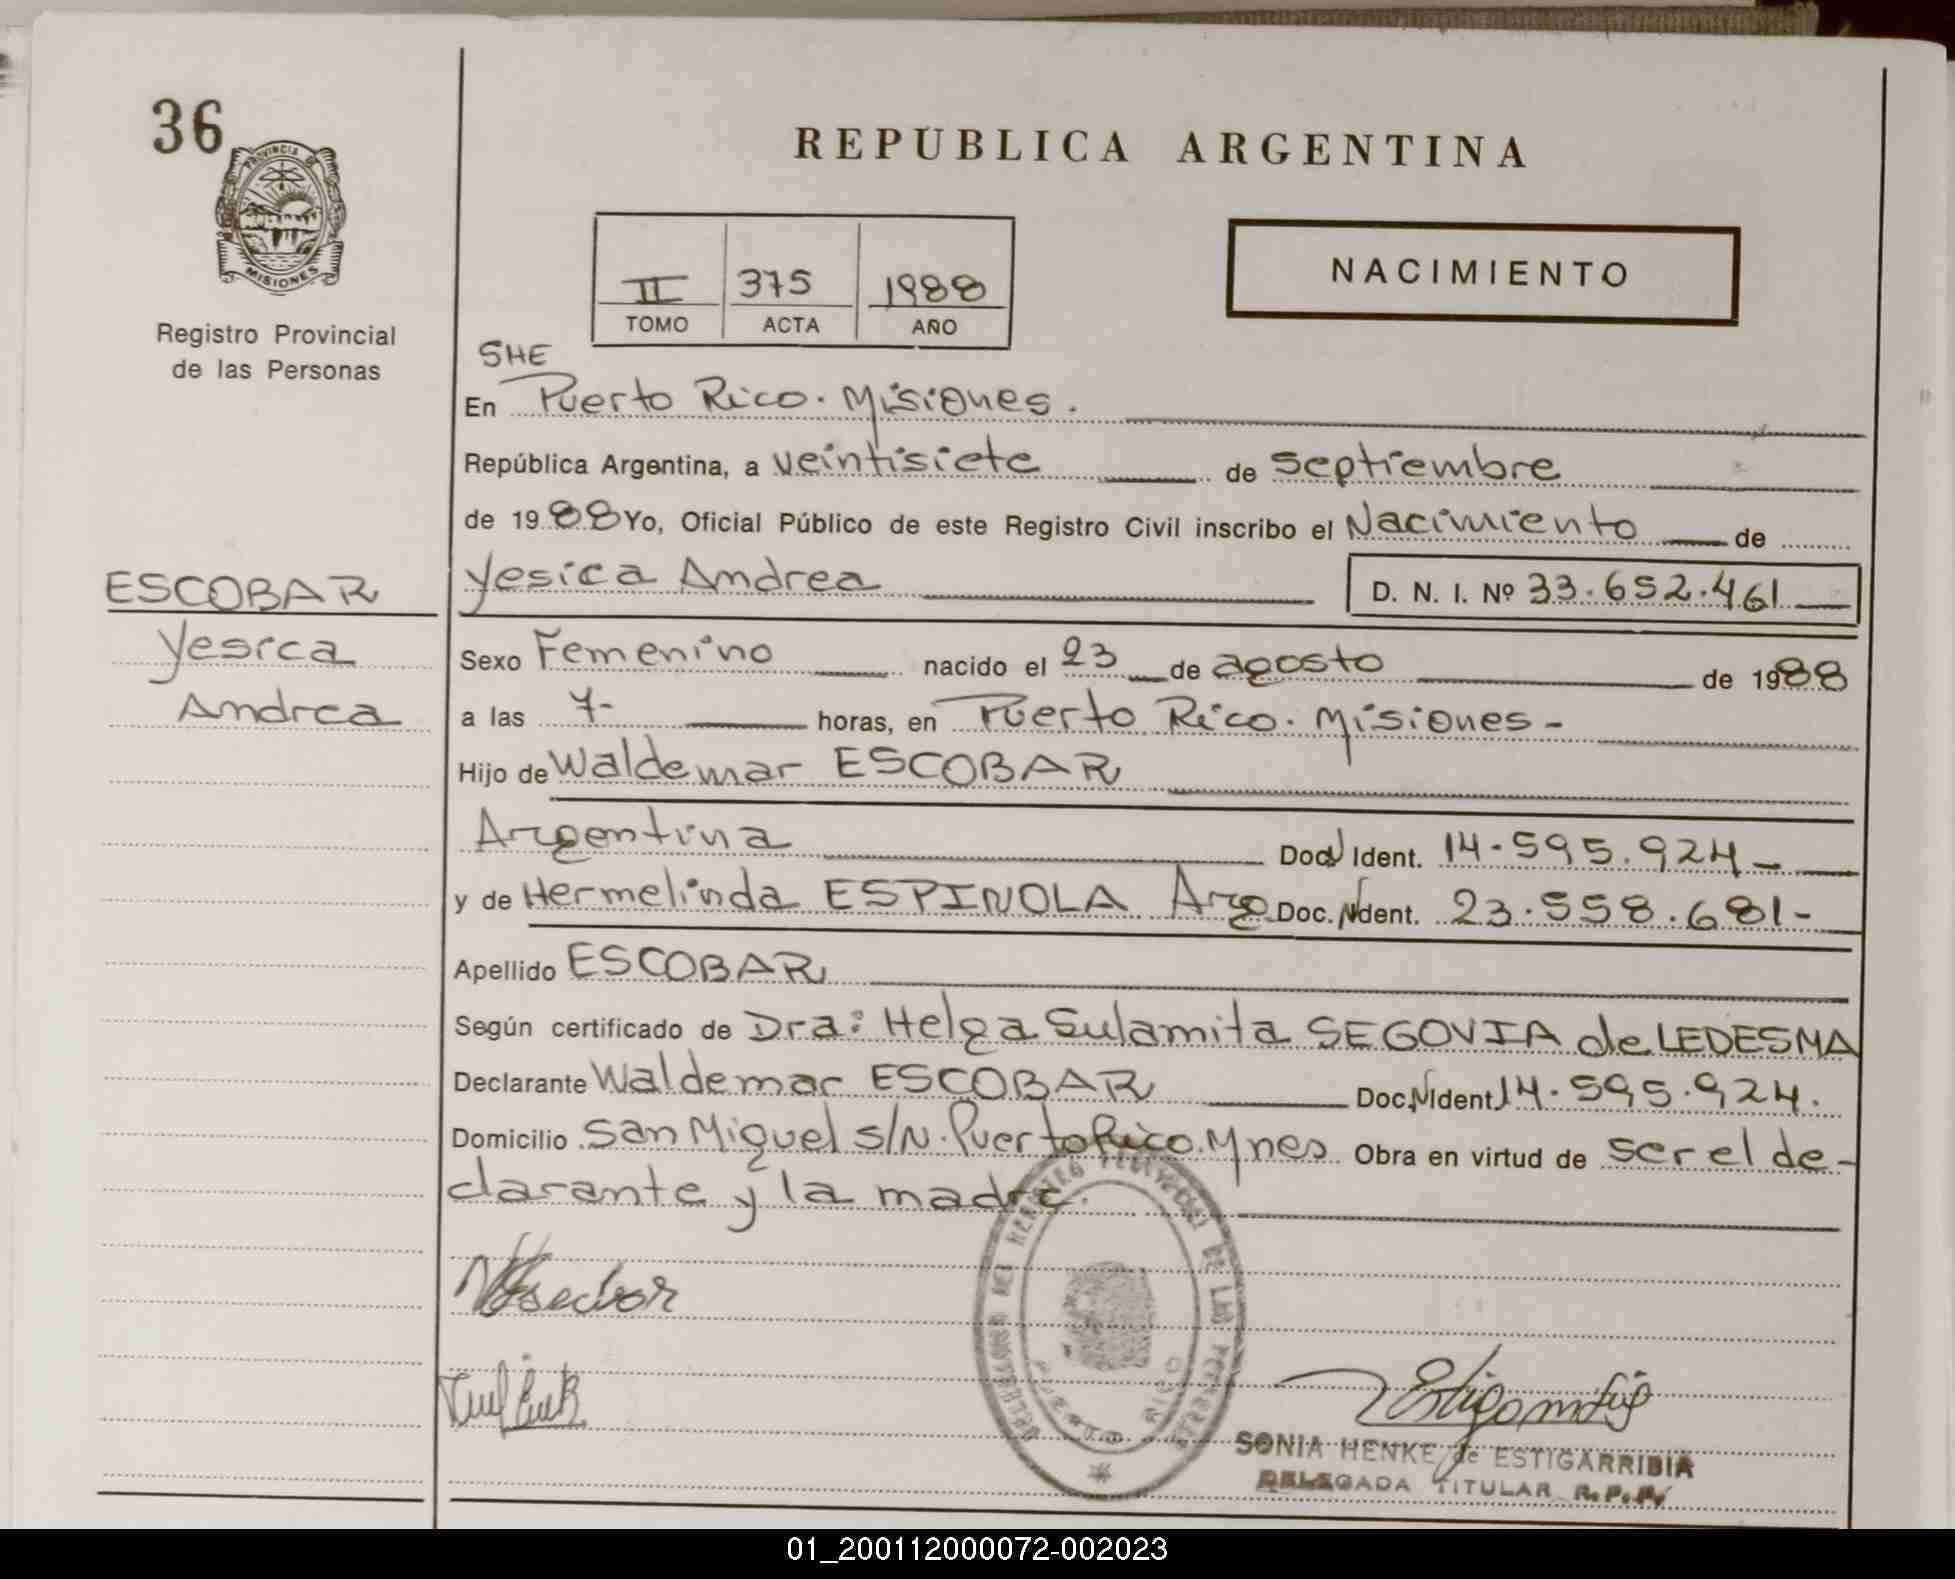 36
PROVINCIA DE
MISIONES
Registro Provincial
de las Personas
ESCOBAR
Yesica
Andrea
REPUBLICA ARGENTINA
II 375 1988
TOMO ACTA AÑO
NACIMIENTO
SHE
En Puerto Rico. Misiones.
República Argentina, a veintisiete de septiembre
de 1988 Yo, Oficial Público de este Registro Civil inscribo el Nacimiento de
Yesica Andrea D. N. I. Nº 33.652.461
Sexo Femenino nacido el 23 de agosto de 1988
a las 7- horas, en Puerto Rico. Misiones-
Hijo de Waldemar ESCOBAR
Argentina Doc. N Ident. 14.595.924-
y de Hermelinda ESPINOLA Arg Doc. N Ident. 23.558.681-
Apellido ESCOBAR
Según certificado de Dra: Helga Sulamita SEGOVIA de LEDESMA
Declarante Waldemar ESCOBAR Doc. N Ident. 14.595.924.
Domicilio San Miguel s/N. Puerto Rico. Mnes Obra en virtud de ser el de-
clarante y la madre.
DE LAS
PUERTO RICO
SONIA HENKE de ESTIGARRIBIA
DELEGADA TITULAR R.P.P.
01_200112000072-002023